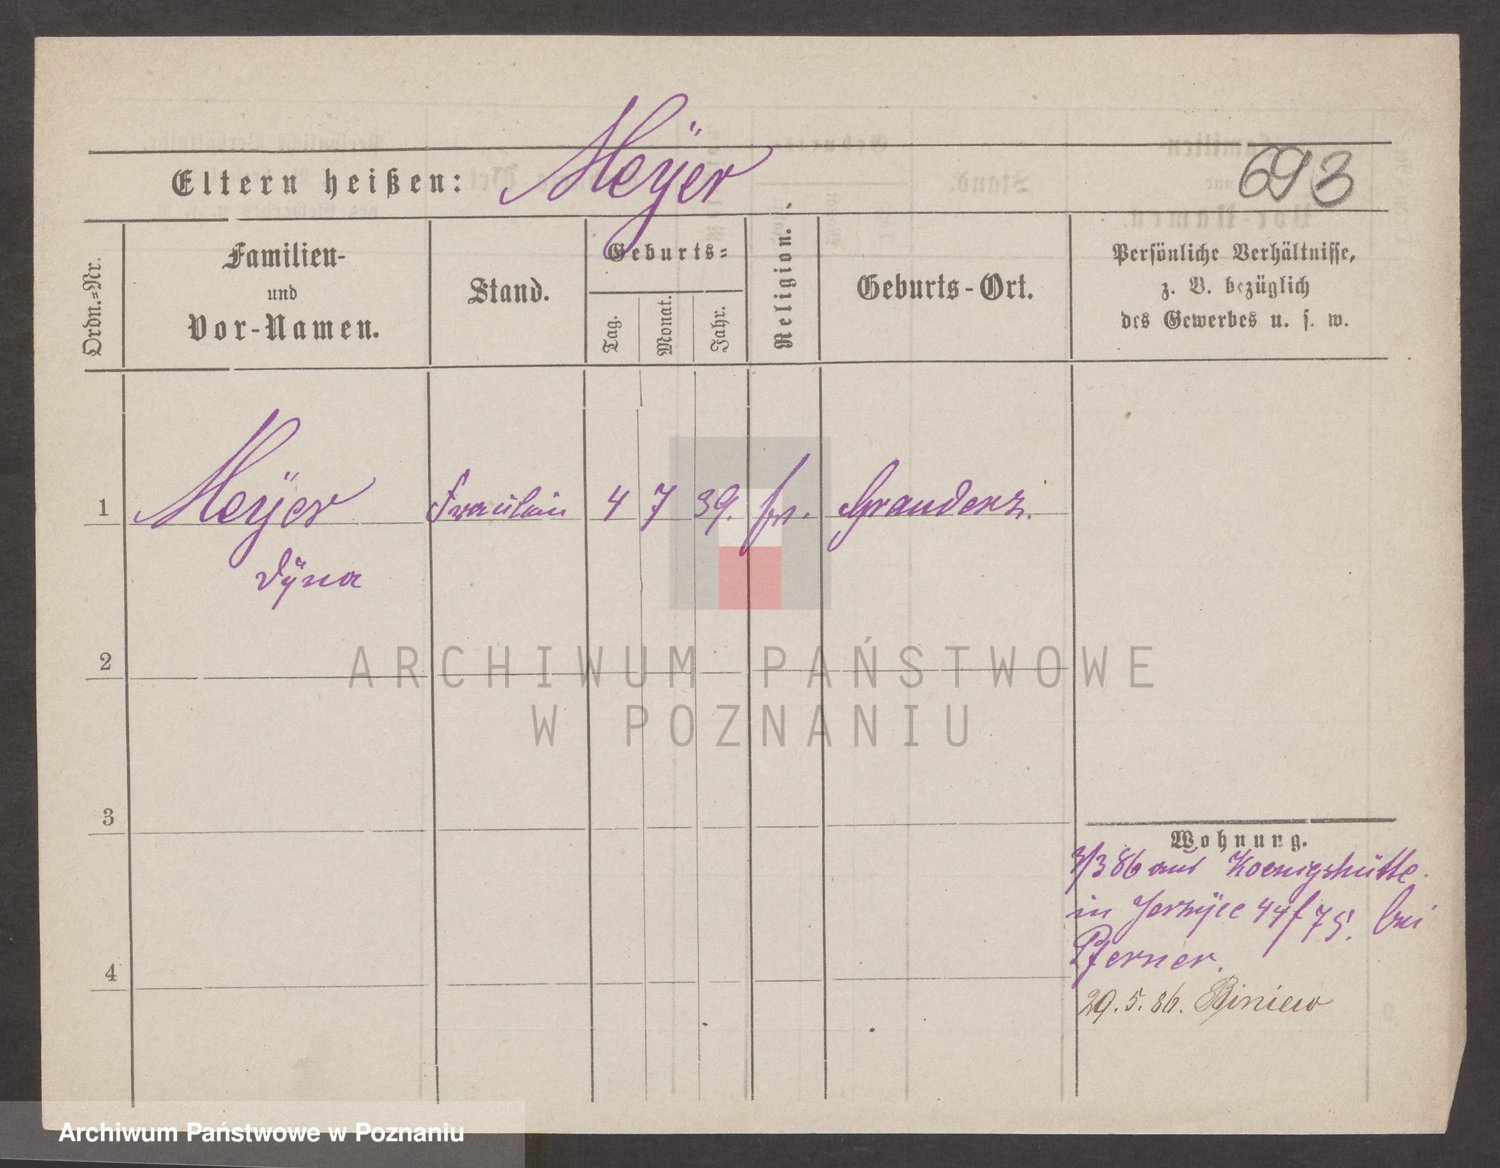 Eltern heißen: Meÿer
693
Ordn.-Nr.
Familien-
und
Vor-Namen.
Stand.
Geburts-
Tag.
Monat.
Jahr.
Religion.
Geburts-Ort.
Persönliche Verhältnisse,
z. B. bezüglich
des Gewerbes u. s. w.
1 Meÿer Fräulein 4 7 39. Graudenz.
Dÿna
2
3
4
Wohnung.
3/3 86 aus Koenigshütte.
in Jerzÿce 44f 75. bei
Pferner.
29. 5. 86. Biniew
ARCHIWUM PAŃSTWOWE
W POZNANIU
Archiwum Państwowe w Poznaniu